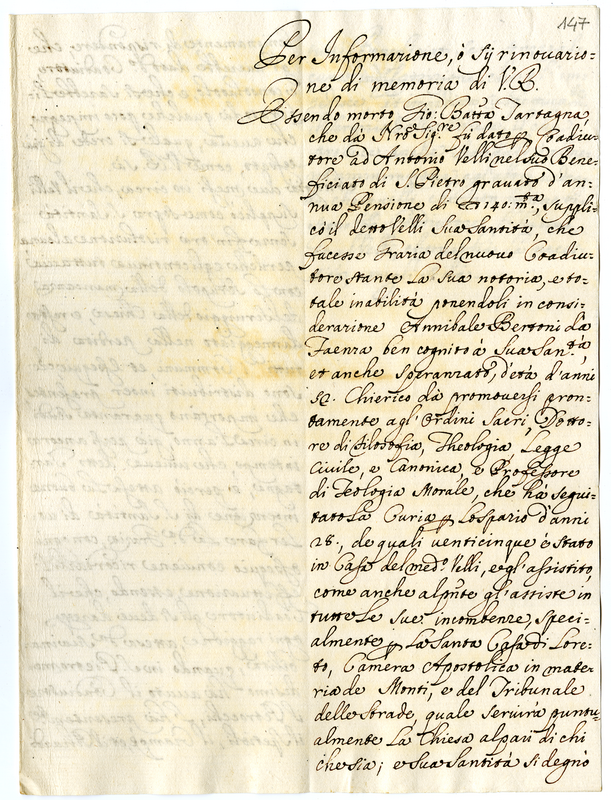 147
Per Informazione, ò sÿ rinouazio=
ne di memoria di V.B.
Essendo morto Gio: Batta Tartagna,
che da Nro Sigre fù dato p Coadiu=
tore ad Antonio Velli nel suo Bene=
ficiato di S. Pietro grauato d'an=
nua Pensione di 140: mta, suppli=
cò il detto Velli Sua Santità, che
facesse Grazia del nuouo Coadiu=
tore stante La Sua notoria, e to=
tale inabilità ponendoli in consi=
derazione Annibale Bertoni da
Faenza ben cognito à Sua San:tà,
et anche speranzato, d'età d'anni
52. Chierico da promouersi pron=
tamente agl'Ordini Sacri, Dotto=
re di filosofia, Theologia, Legge
Ciuile, e Canonica, e Professore
di Teologia Morale, che ha segui=
tato La Curia p Lo spazio d'anni
28., de quali uenticinque è stato
in Casa del medo. Velli, e gl'assistito
come anche al pnte gl'assiste in
tutte Le sue incombenze, speci=
almente p La Santa Casa di Lore=
to, Camera Apostolica in mate=
ria de Monti, e del Tribunale
delle strade, quale seruirà puntu=
almente La Chiesa al pari di chi
che sia; e Sua Santità si degnò